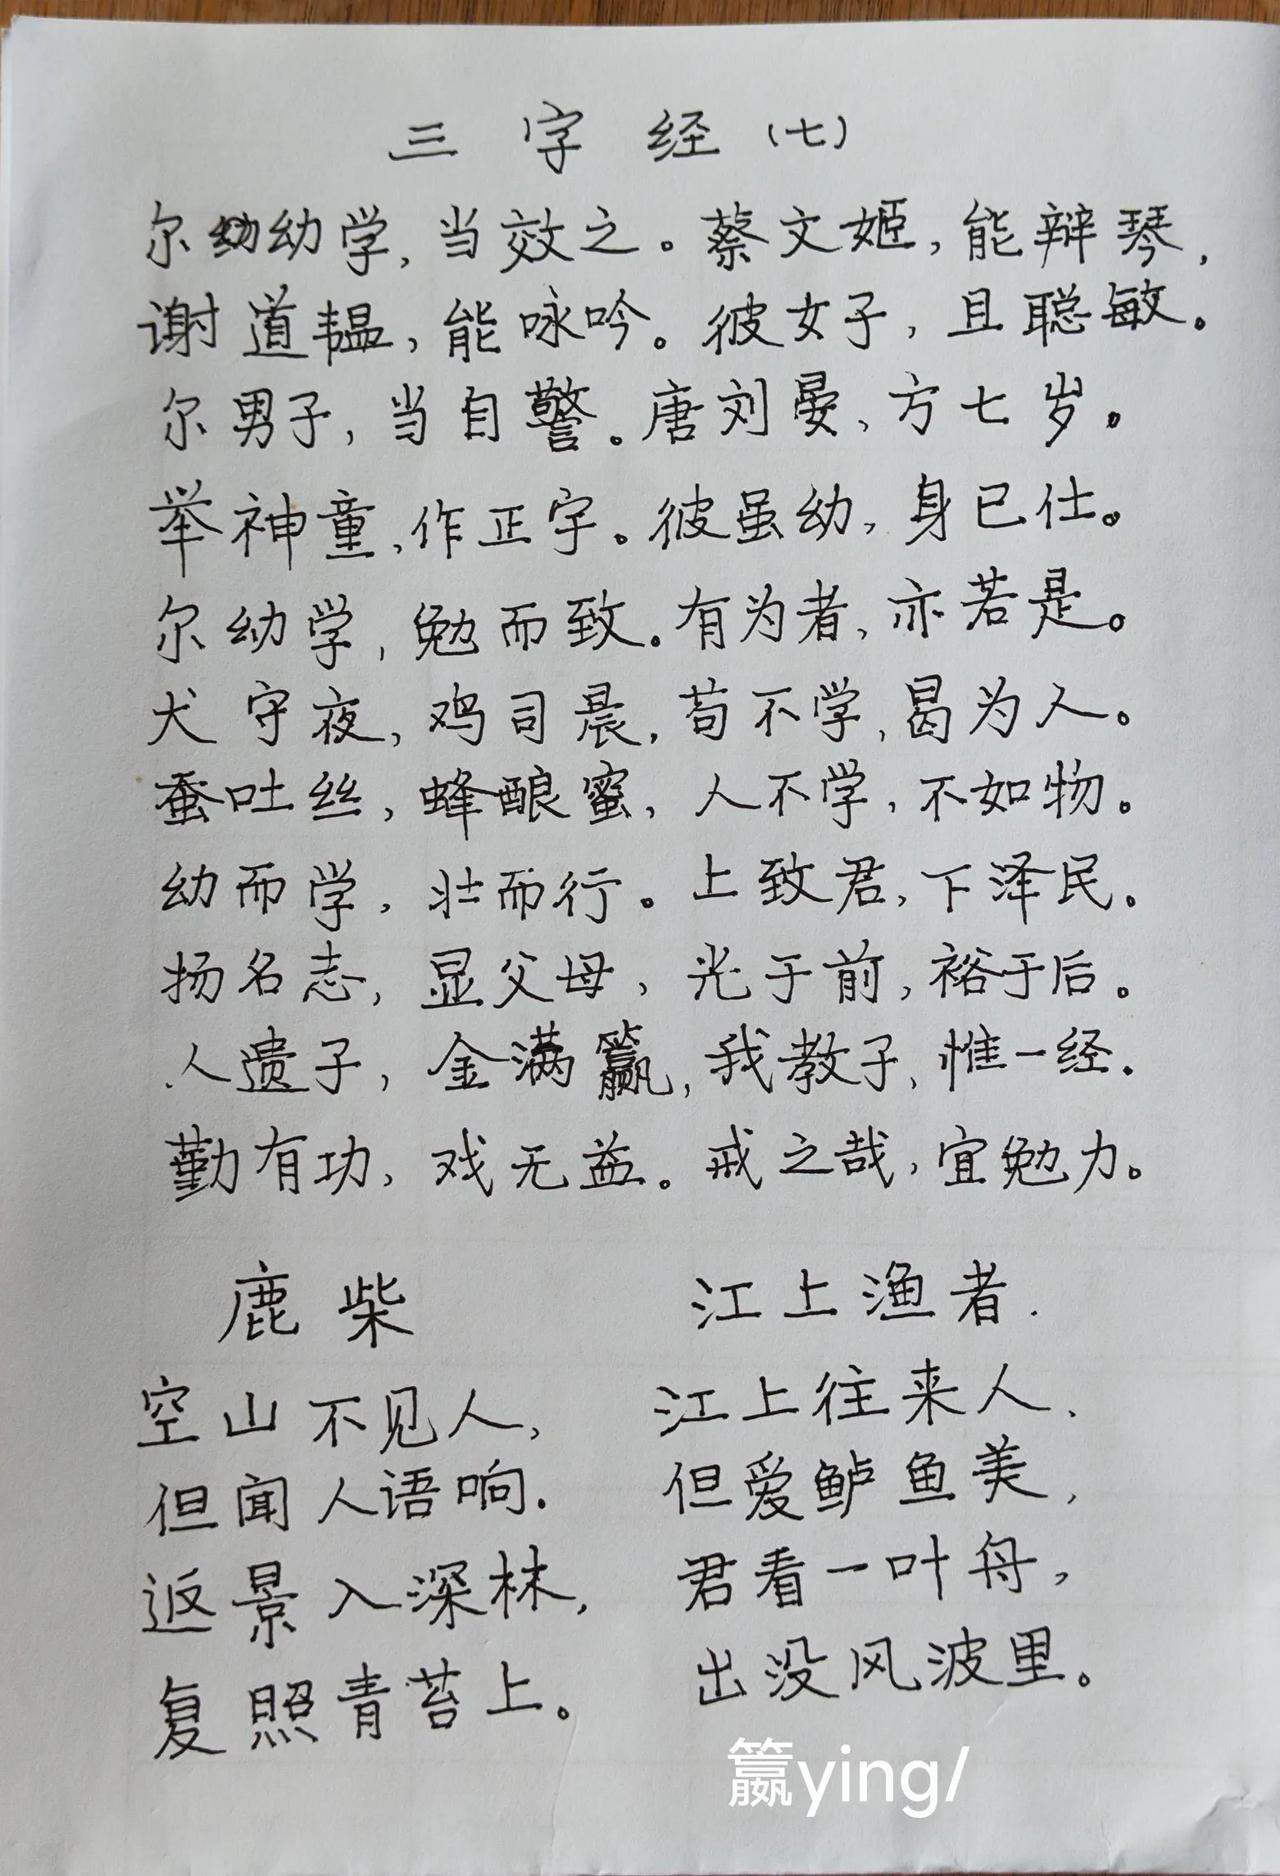 三字经（七）
尔幼幼学，当效之。蔡文姬，能辩琴，
谢道韫，能咏吟。彼女子，且聪敏。
尔男子，当自警。唐刘晏，方七岁。
举神童，作正字。彼虽幼，身已仕。
尔幼学，勉而致。有为者，亦若是。
犬守夜，鸡司晨，苟不学，曷为人。
蚕吐丝，蜂酿蜜，人不学，不如物。
幼而学，壮而行。上致君，下泽民。
扬名志，显父母，光于前，裕于后。
人遗子，金满籯，我教子，惟一经.
勤有功，戏无益。戒之哉，宜勉力。
鹿柴
空山不见人，
但闻人语响.
返景入深林，
复照青苔上。
江上渔者.
江上往来人、
但爱鲈鱼美，
君看一叶舟，
出没风波里。
籯ying/